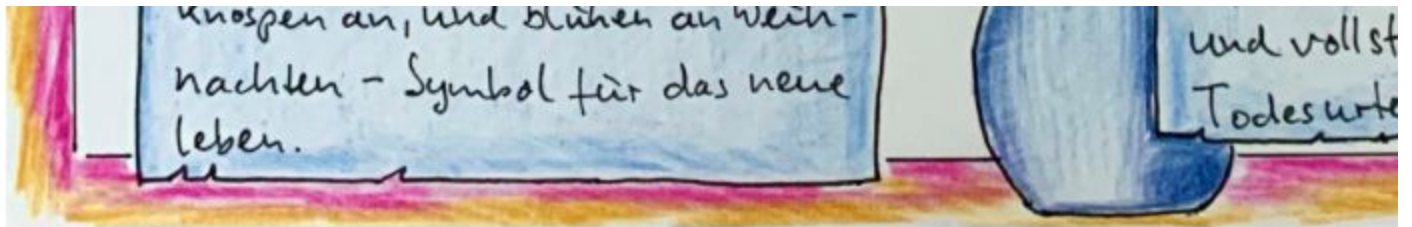 Knospen an, und blühen an Weih-
nachten - Symbol für das neue
leben.
und vollst
Todesurte